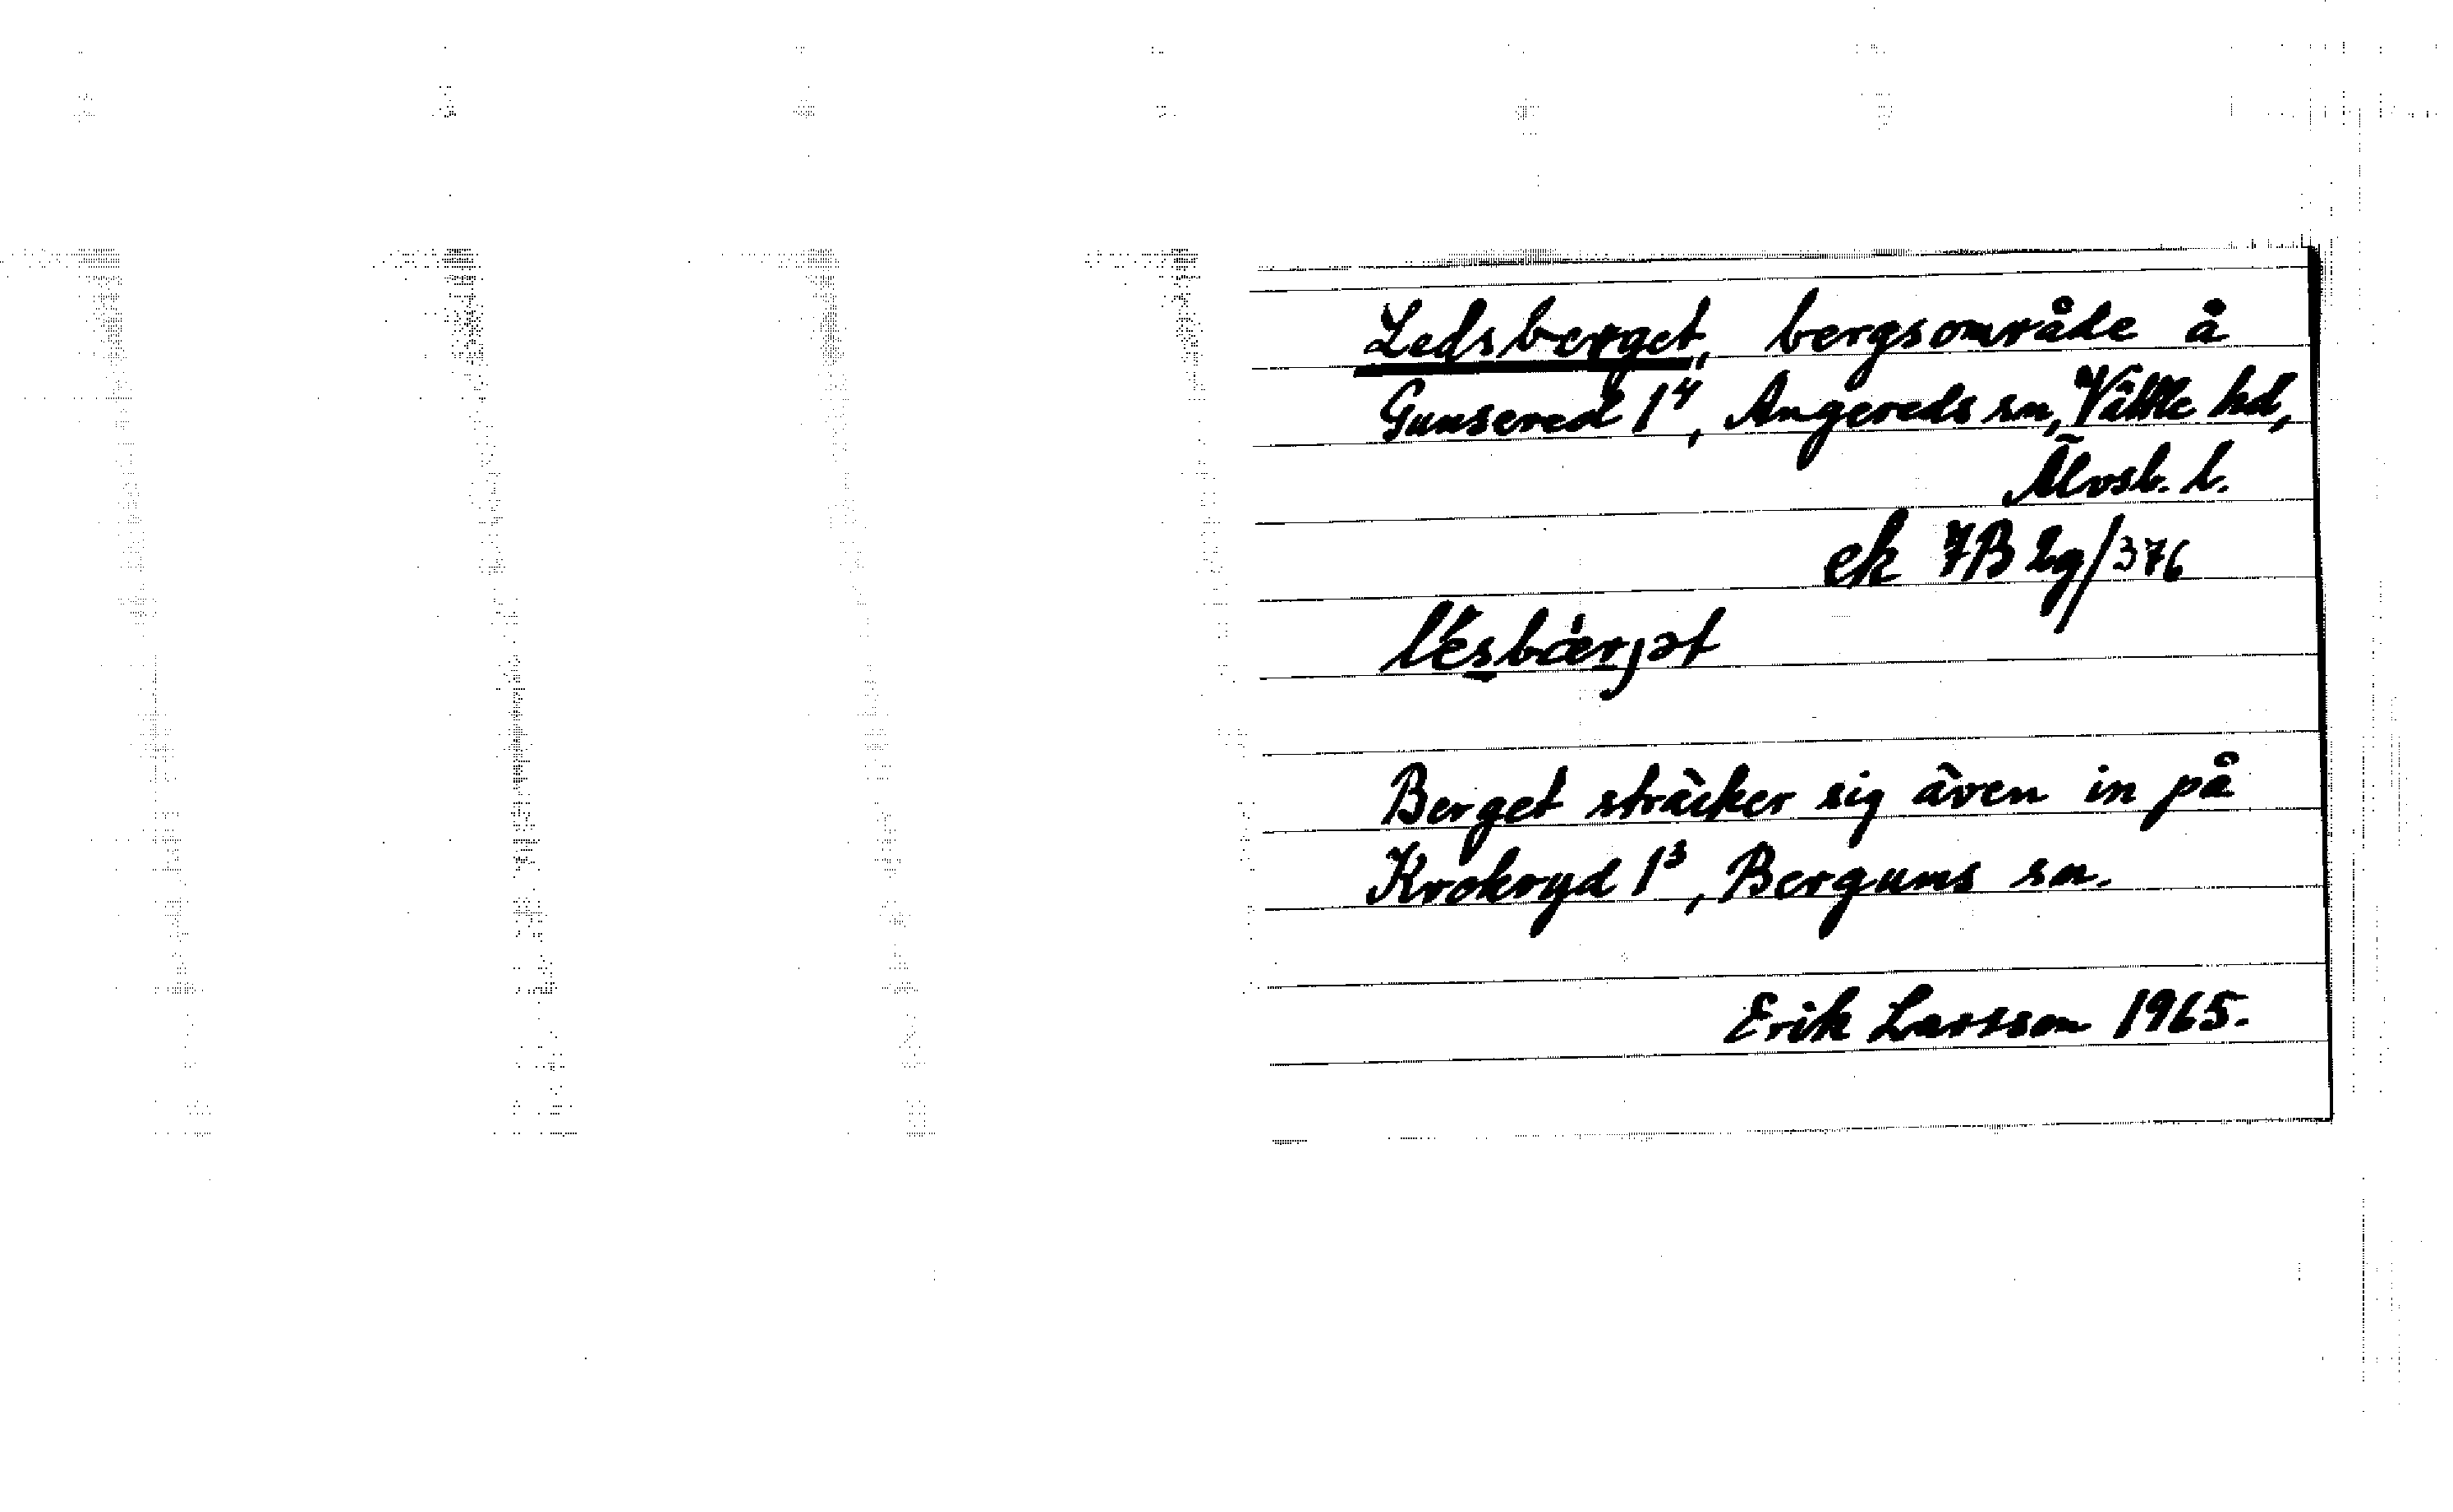 Ledsberget, bergsområde å
Gunsered 1⁴, Angereds sn, Vättle hd,
Älvsb. l.
ek 7B 2g/376
Berget sträcker sig även in på
Krokryd 1³, Bergums sn.
Erik Larsson 1965.